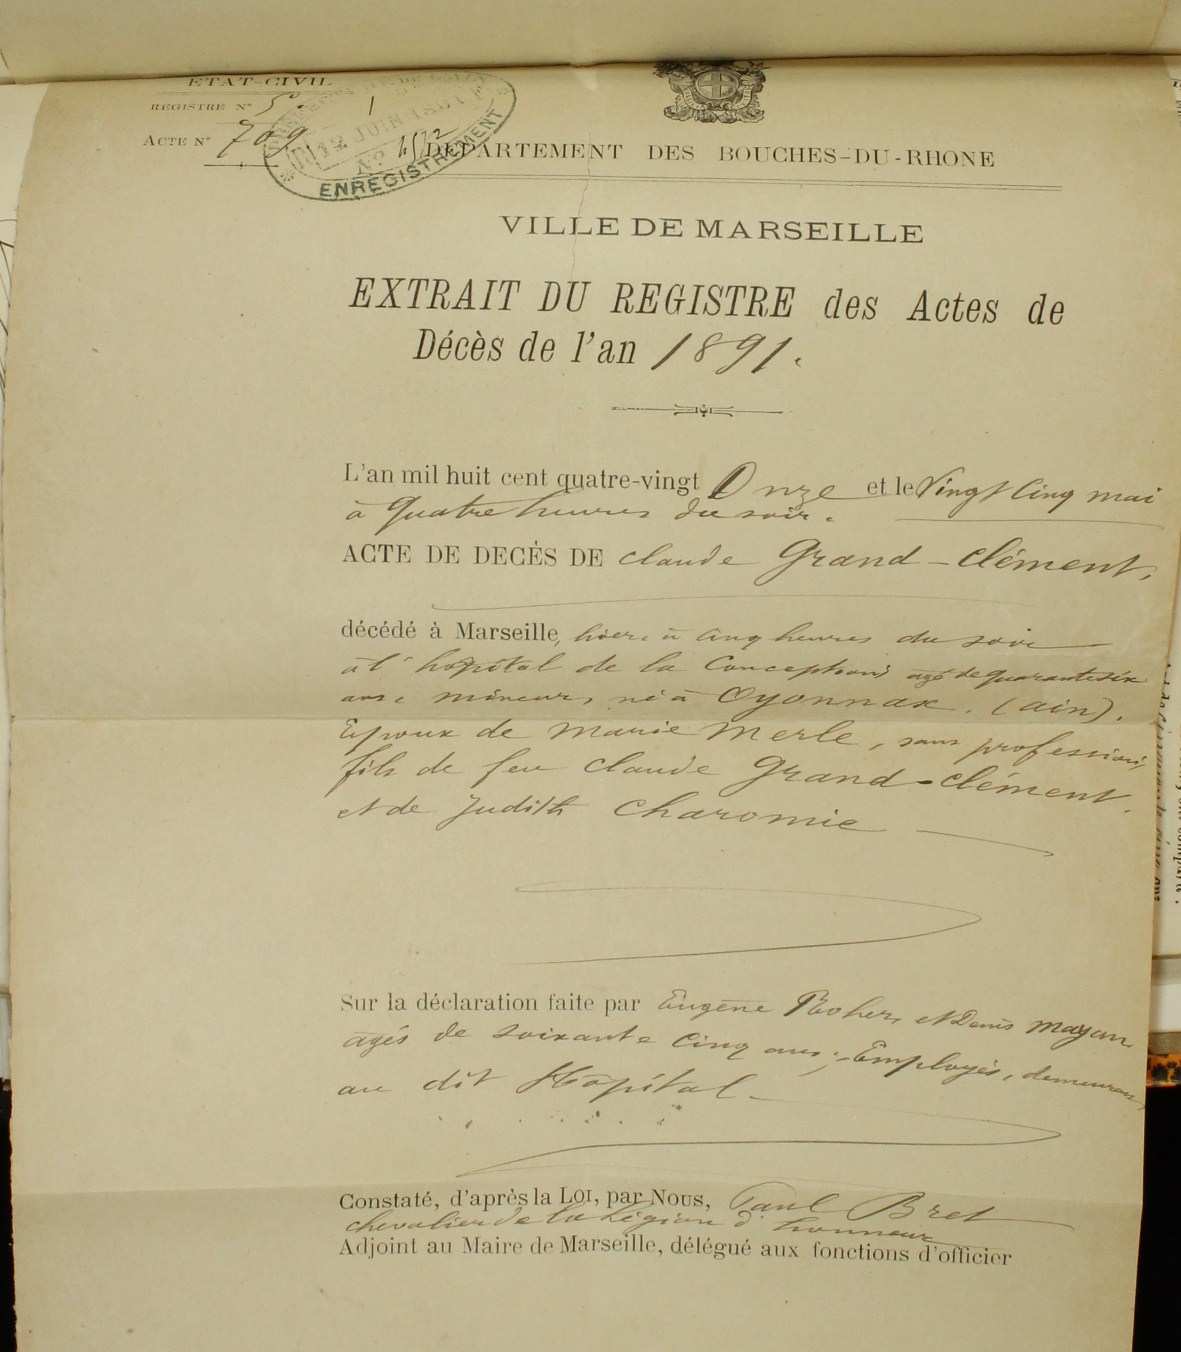 ETAT-CIVIL
REGISTRE N° 5. 1
ACTE N° 709
12 JUIN 1891
ENREGISTREMENT
DÉPARTEMENT DES BOUCHES-DU-RHONE
VILLE DE MARSEILLE
EXTRAIT DU REGISTRE des Actes de
Décès de l'an 1891.
L'an mil huit cent quatre-vingt Onze et le Vingt Cinq mai
à quatre heures du soir.
ACTE DE DECÉS DE Claude Grand-Clément,
décédé à Marseille, hier à Cinq heures du soir
à l'hopital de la Conception, agé de quarante six
ans, mineur, né à Oyonnax. (ain).
Epoux de Marie Merle, sans profession,
fils de feu Claude Grand-Clément.
et de Judith Charomie
Sur la déclaration faite par Eugène et Denis Mayan
agés de soixante cinq ans, Employés, demeuran
au dit Hôpital.
Constaté, d'après la LOI, par NOUS, Paul Bret
chevalier de la Légion d'honneur
Adjoint au Maire de Marseille, délégué aux fonctions d'officier